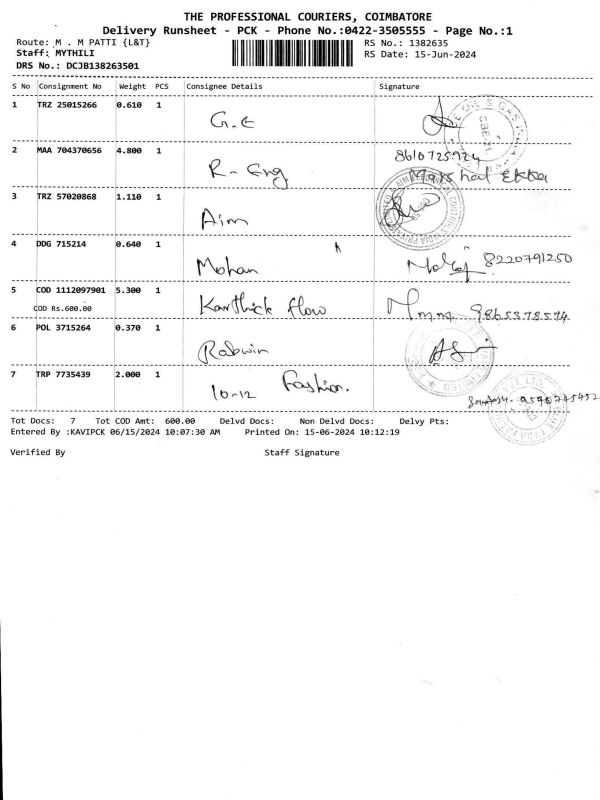 THE PROFESSIONAL COURIERS, COIMBATORE
Delivery Runsheet - PCK - Phone No.:0422-3505555 - Page No.:1
Route: M . M PATTI {L&T} RS No.: 1382635
Staff: MYTHILI RS Date: 15-Jun-2024
DRS No.: DCJB138263501
S No Consignment No Weight PCS Consignee Details Signature
1 TRZ 25015266 0.610 1 G.E
2 MAA 704370656 4.800 1 R-Eng 8610725924 Marshal Ekka
3 TRZ 57020868 1.110 1 Aim
4 DDG 715214 0.640 1 Mohan 8220791250
5 COD 1112097901 5.300 1 Karthick flow 9865378574
COD Rs.600.00
6 POL 3715264 0.370 1 Rabwin
7 TRP 7735439 2.000 1 10-12 Fashion.
Tot Docs: 7 Tot COD Amt: 600.00 Delvd Docs: Non Delvd Docs: Delvy Pts:
Entered By :KAVIPCK 06/15/2024 10:07:30 AM Printed On: 15-06-2024 10:12:19
Verified By Staff Signature